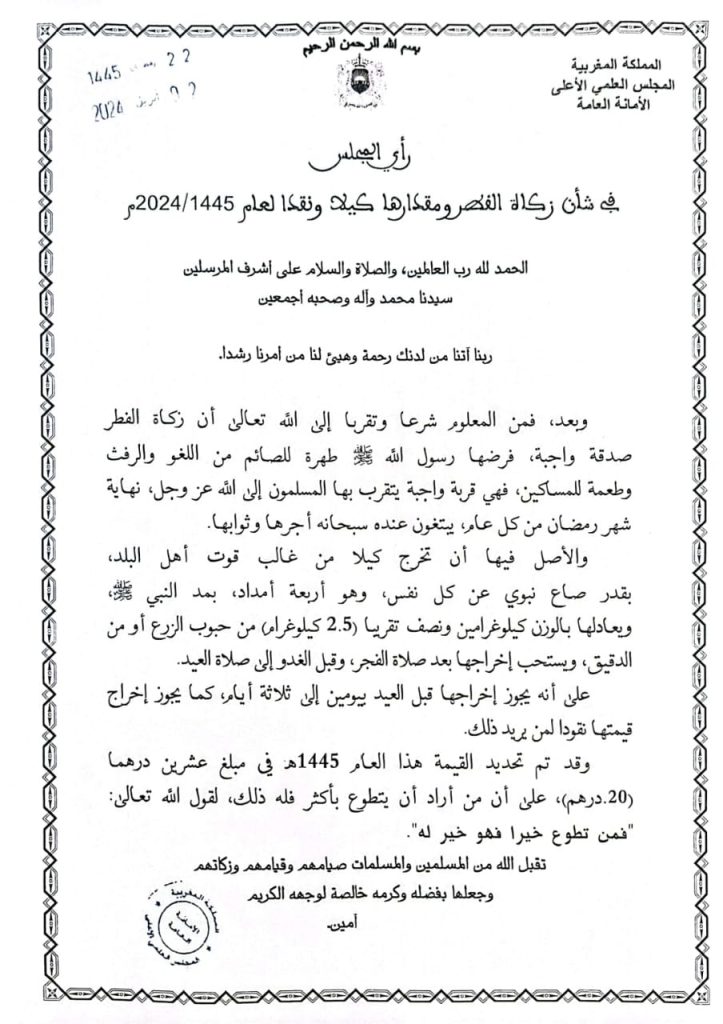 بسم الله الرحمن الرحيم
المملكة المغربية
المجلس العلمي الأعلى
الأمانة العامة
22 1445
02 أبريل 2024
رأي المجلس
في شأن زكاة الفطر ومقدارها كيلا ونقدا لعام 2024/1445م
الحمد لله رب العالمين، والصلاة والسلام على أشرف المرسلين
سيدنا محمد وآله وصحبه أجمعين
ربنا آتنا من لدنك رحمة وهيئ لنا من أمرنا رشدا.
وبعد، فمن المعلوم شرعا وتقربا إلى الله تعالى أن زكاة الفطر
صدقة واجبة، فرضها رسول الله ﷺ طهرة للصائم من اللغو والرفث
وطعمة للمساكين، فهي قربة واجبة يتقرب بها المسلمون إلى الله عز وجل، نهاية
شهر رمضان من كل عام، يبتغون عنده سبحانه أجرها وثوابها.
والأصل فيها أن تخرج كيلا من غالب قوت أهل البلد،
بقدر صاع نبوي عن كل نفس، وهو أربعة أمداد، بمد النبي ﷺ،
ويعادلها بالوزن كيلوغرامين ونصف تقريبا (2.5 كيلوغرام) من حبوب الزرع أو من
الدقيق، ويستحب إخراجها بعد صلاة الفجر، وقبل الغدو إلى صلاة العيد.
على أنه يجوز إخراجها قبل العيد بيومين إلى ثلاثة أيام، كما يجوز إخراج
قيمتها نقودا لمن يريد ذلك.
وقد تم تحديد القيمة هذا العام 1445هـ في مبلغ عشرين درهما
(20.درهم)، على أن من أراد أن يتطوع بأكثر فله ذلك، لقول الله تعالى:
"فمن تطوع خيرا فهو خير له".
تقبل الله من المسلمين والمسلمات صيامهم وقيامهم وزكاتهم
وجعلها بفضله وكرمه خالصة لوجهه الكريم
آمين.
المملكة المغربية
الأمانة
العامة
المجلس العلمي الأعلى